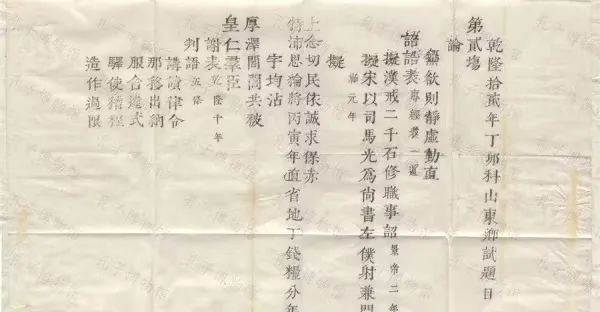 乾隆拾貳年丁卯科山東鄉試題目
第貳塲
論
無欲則靜虛動直
詔誥表專經者一道
擬漢戒二千石修職事詔景帝二年
擬宋以司馬光爲尚書左僕射兼門
元年
擬
上念切民依誠求保赤
特沛恩綸將丙寅年直省地丁錢糧分年
字均沾
厚澤閭閻共被
皇仁羣臣
謝表乾隆十年
判語五條
講讀律令
那移出納
服舍違式
驛使稽程
造作過限